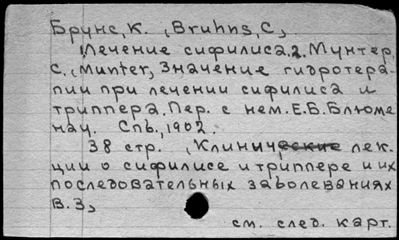 Брунс, К. (Bruhns, C),
Лечение сифилиса. 2. Мунтер,
С. (Munter, Значение гидротера-
пии при лечении сифилиса и
триппера. Пер. с нем. Е.Б. Блюме
нау. Спб., 1902.
38 стр. (Клинические лек.
ции о сифилисе и триппере и их
последовательных заболеваниях
В. 3)
см. след. карт.